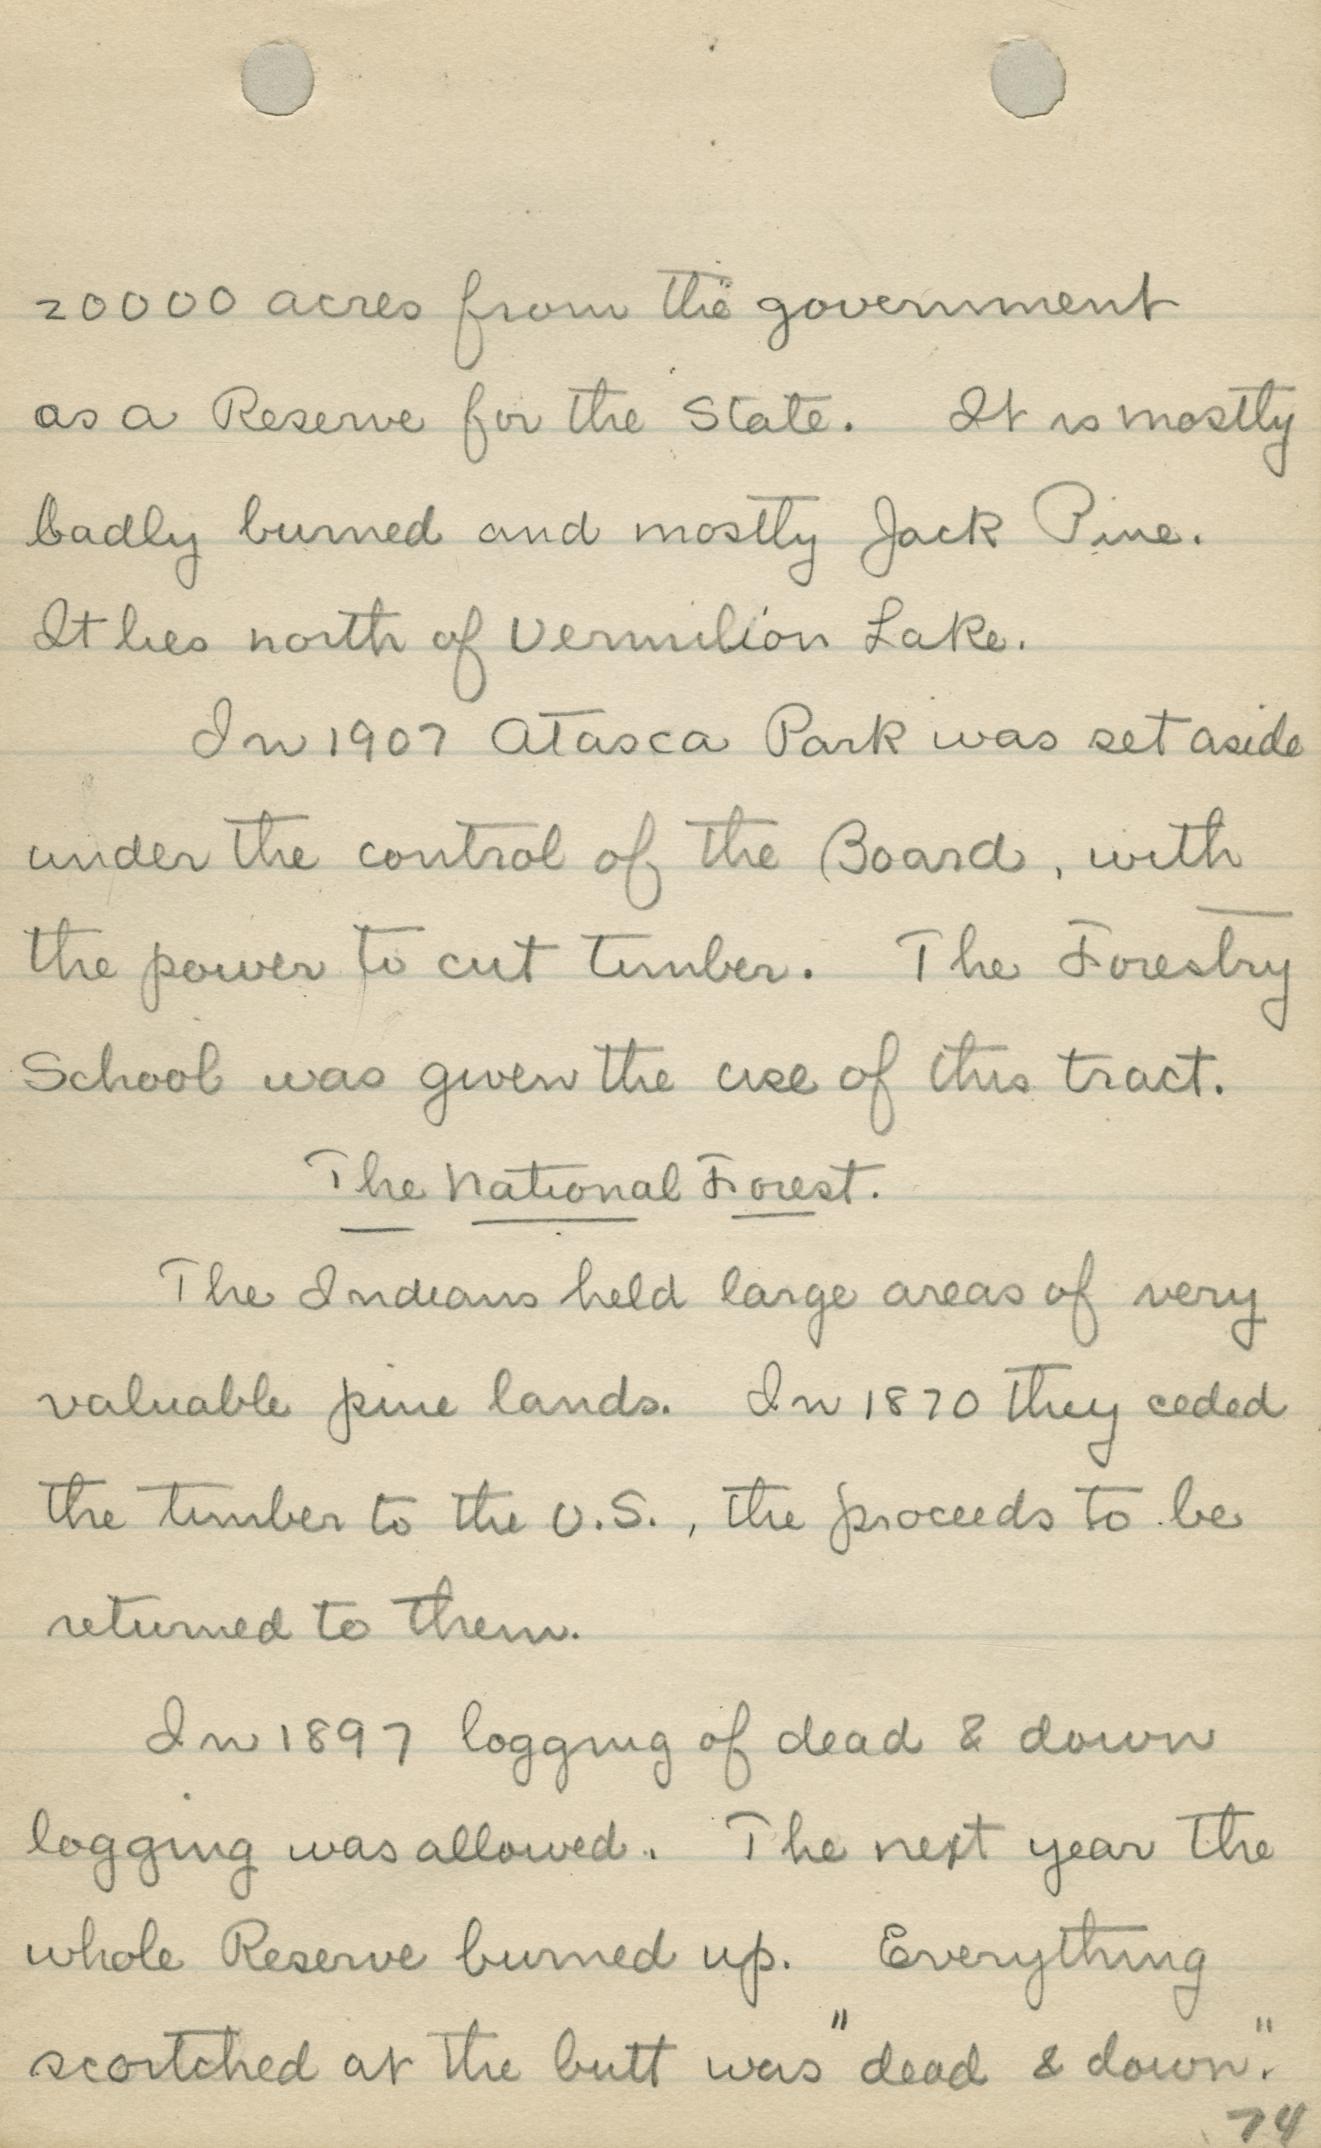 20000 acres from the government
as a Reserve for the State. It is mostly
badly burned and mostly Jack Pine.
It lies north of Vermilion Lake.
In 1907 Atasca Park was set aside
under the control of the Board, with
the power to cut timber. The Forestry
School was given the use of this tract.
The National Forest.
The Indians held large areas of very
valuable pine lands. In 1870 they ceded
the timber to the U.S., the proceeds to be
returned to them.
In 1897 logging of dead & down
logging was allowed. The next year the
whole Reserve burned up. Everything
scortched at the butt was "dead & down".
74